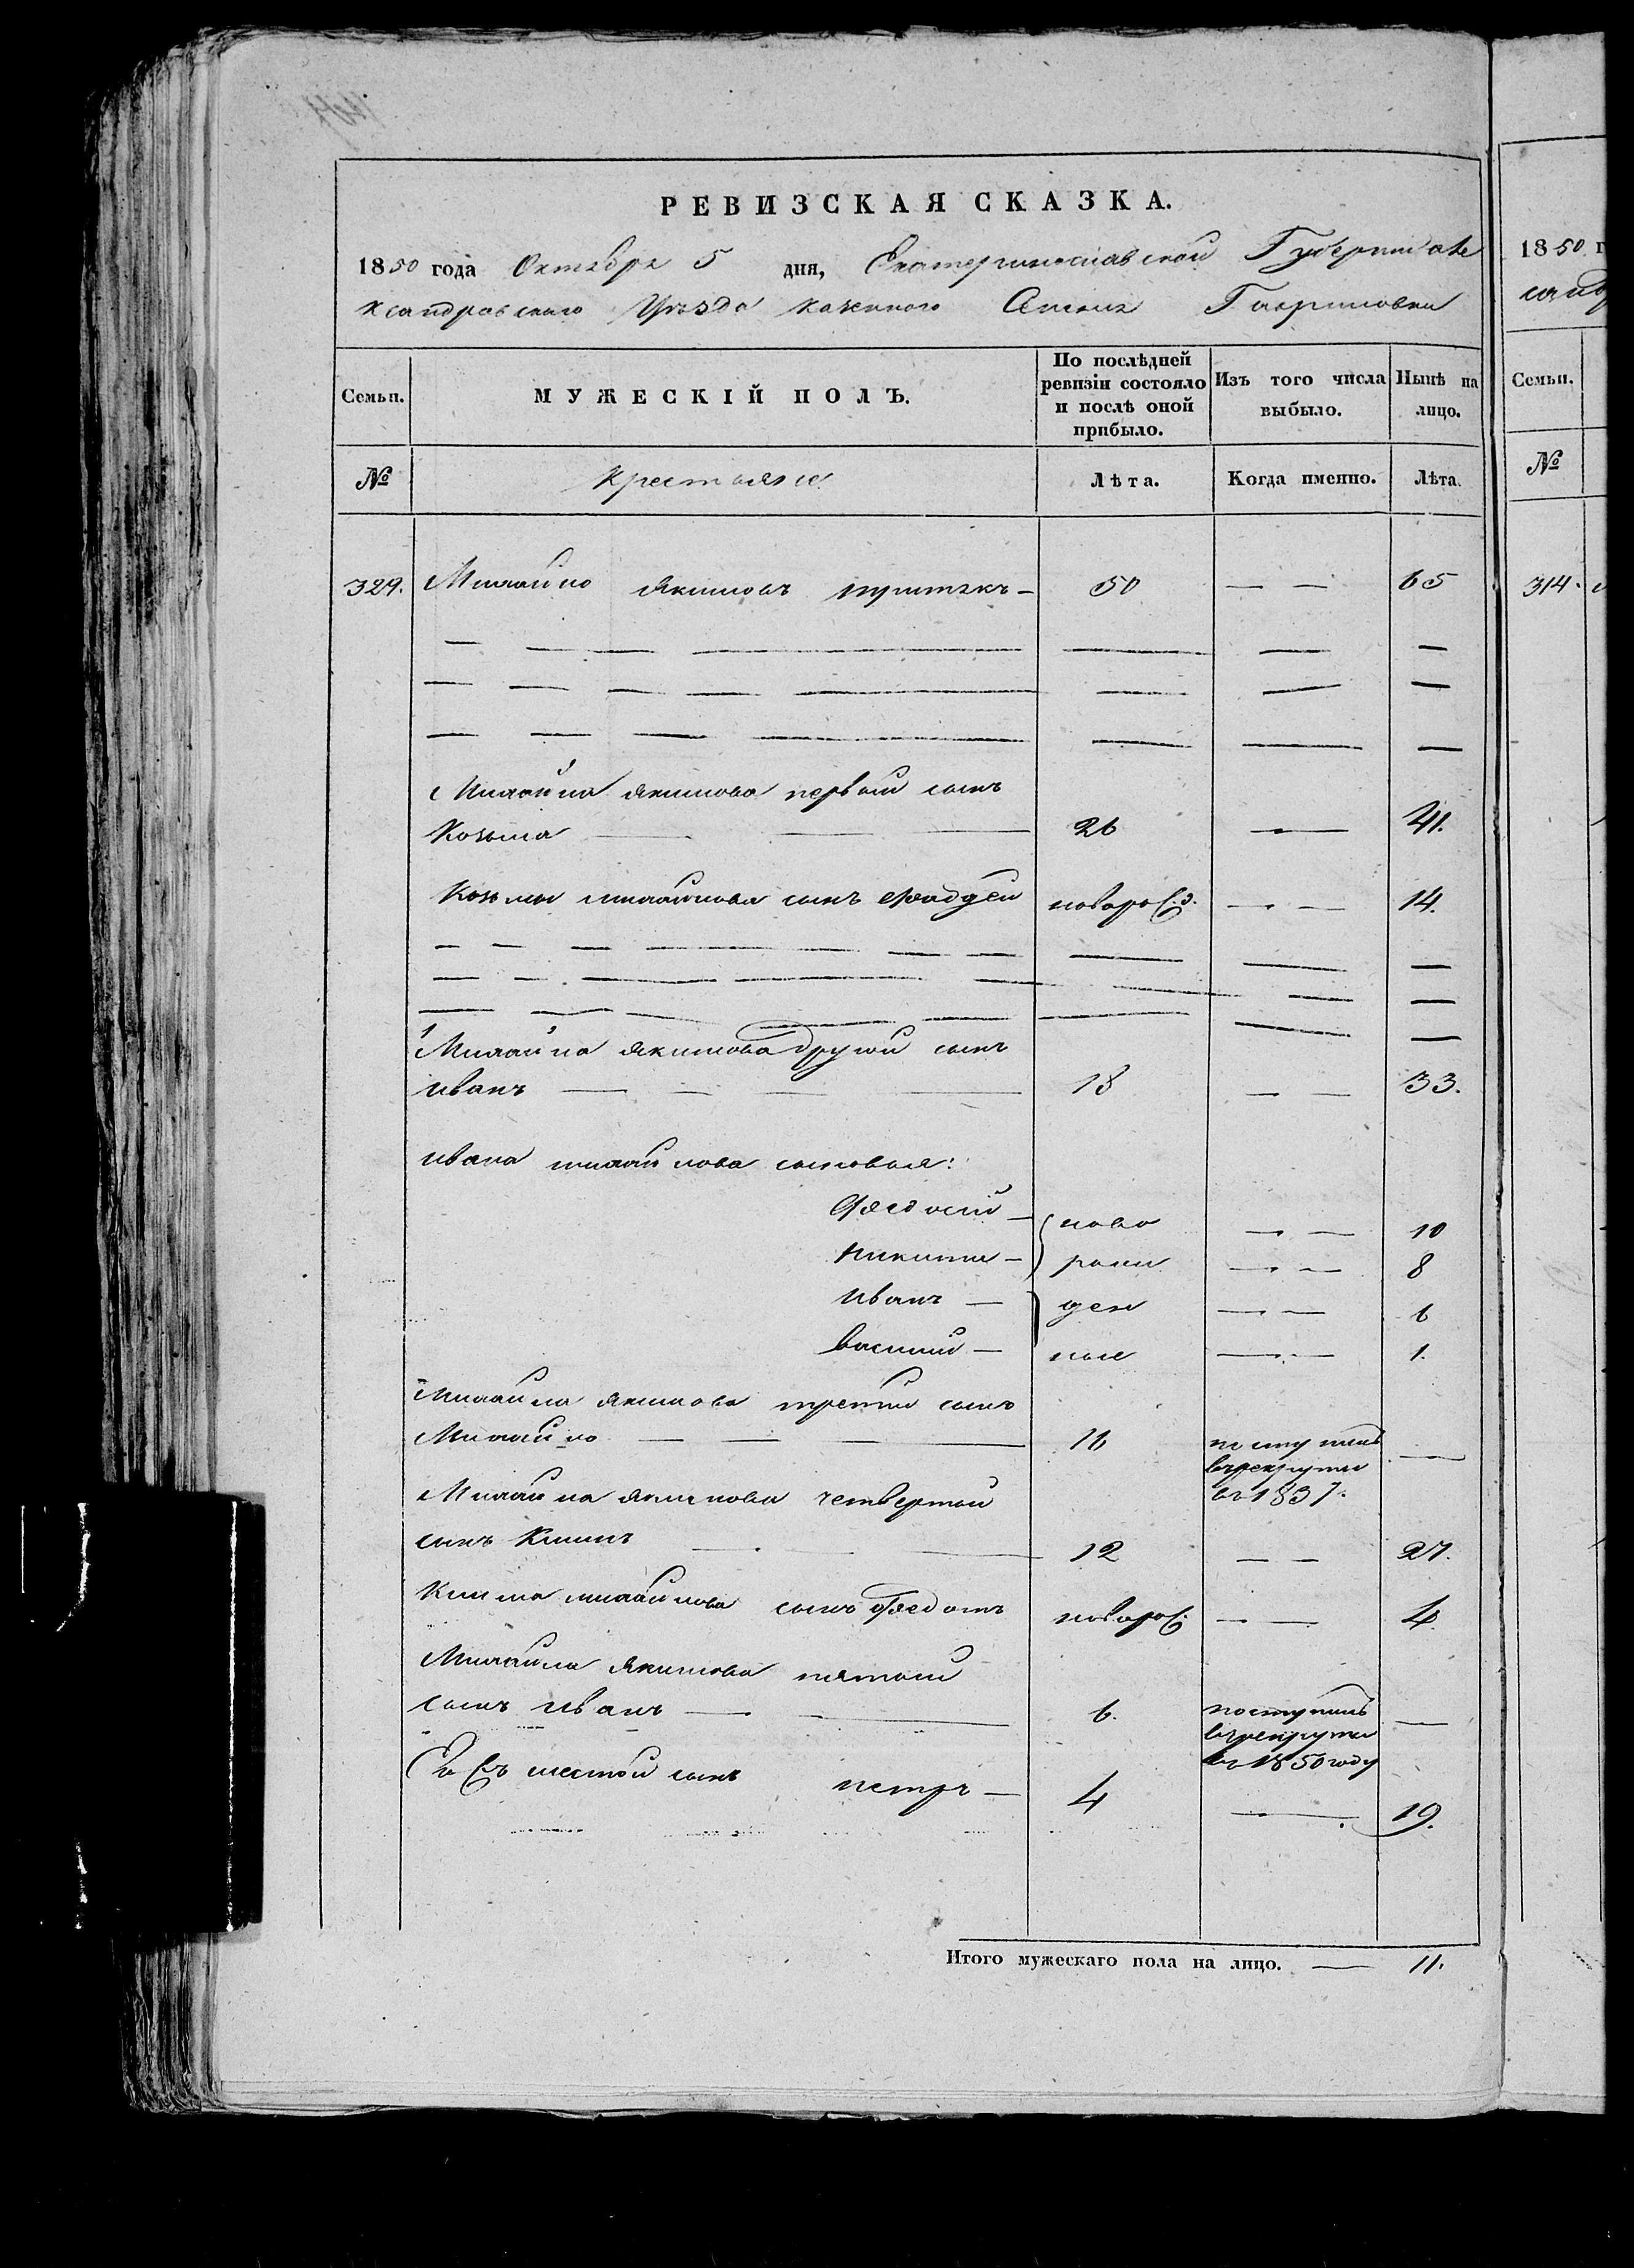 РЕВИЗСКАЯ СКАЗКА.
1850 года Октября 5 дня, Екатеринославской Губернии але
ксандровского Уѣзда казенного Селенія Гавриловки
Семьи.
МУЖЕСКІЙ ПОЛЪ.
По послѣдней ревизіи состояло и послѣ оной прибыло.
Изъ того числа выбыло.
Нынѣ на лицо.
№ Крестьяне Лѣта. Когда именно. Лѣта.
329. Михайло Якимовъ 50 — — 65
Михайла Якимова первый сынъ
Козьма — 26 — 41.
Козьмы михайлова сынъ Фаддей новорож. — — 14.
Михайла Якимова другой сынъ
Иванъ — 18 — — 33.
Ивана михайлова сыновья:
Федосий — ново — — 10
Никита — рож — — 8
Иванъ — ден — — 6
Василий — ные — — 1.
Михайла Якимова третий сынъ
Михайло — 16 поступилъ —
врекруты
въ 1837.
Михайла Якимова четвертой
сынъ Климъ — 12 — — 27.
Клима михайлова сынъ Федотъ новорож. — — 4.
Михайла Якимова пятый
сынъ Иванъ — 6. поступилъ —
врекруты
въ 1850 году
шестой сынъ Петръ — 4 — 19.
Итого мужескаго пола на лицо. — 11.
1850 г
Семьи.
№
314.